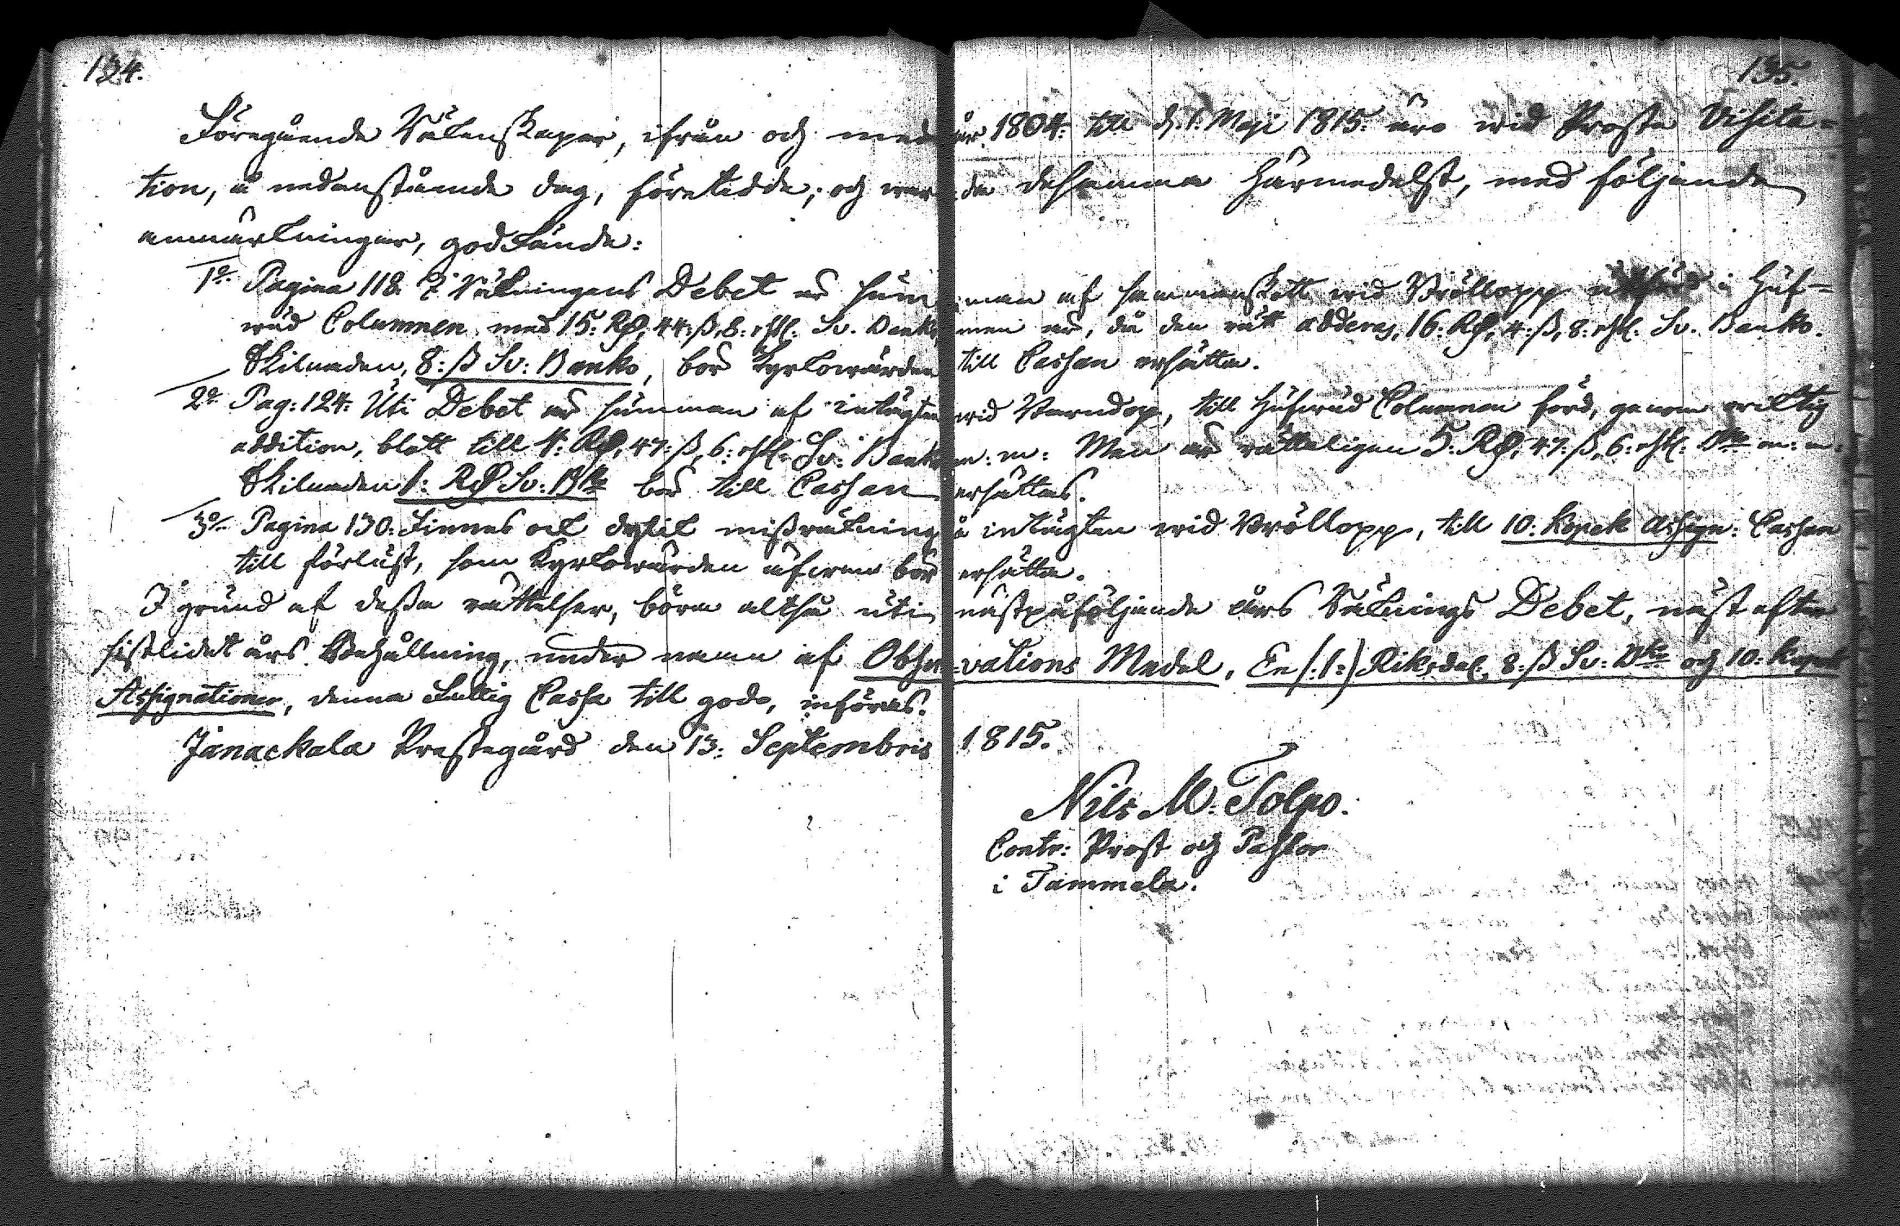 134.
135.
Föregående Räkenskaper, ifrån och med år 1804: till d. 1. Maji 1815: äro wid Prosta Visita=
tion, å nedanstående dag, företedde; och warda desamma härmedelst, med följande
anmärkningar, godkände:
1o Pagina 118. I Räkningens Debet är summan af sammanskott wid Bröllopp utförd i Huf=
wud Columnen med 15: Rd, 44: ß, 8: rst. Sv. Banko men är, då den rätt adderas, 16: Rd, 4: ß, 8: rst. Sv. Banko.
Skilnaden, 8: ß Sv: Banko, bör Kyrkowärden till Cassan ersätta.
2o Pag: 124: Uti Debet är summan af intägten wid Barndop, till Hufwud Columnen förd, genom oriktig
addition, blott till 4: Rd, 47: ß, 6: rst. Sv: Banko m: m: Men är rätteligen 5: Rd, 47: ß, 6: rst. Bko m: m:
Skilnaden 1: Rd Sv: Bko bör till Cassan ersättas.
3o Pagina 130: Finnes ock dylik missräkning å intägten wid Bröllopp, till 10: Kopek Assign: Cassan
till förlust, som Kyrkowärden äfwen bör ersätta.
I grund af dessa rättelser, böra altså uti nästpåföljande års Räknings Debet, näst efter
sistlidet års Behållning, under namn af Observations Medel, En (:1:) Riksdal. 8: ß Sv: Bko och 10: Kopek
Assignationer, denna Fattig Cassa till godo, införas.
Janackala Prestegård den 13: Septembris 1815.
Nils M: Tolpo.
Contr: Prost och Pastor
i Tammela.